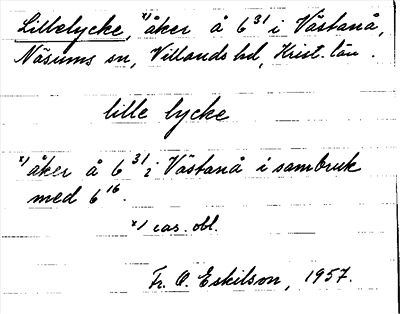 Lillelycke, x) åker å 6 31 i Västanå,
Näsums sn, Villands hd, Krist. län.
lille lycke
x) åker å 6 31 i Västanå i sambruk
med 6 16.
x) cas. obl.
Fr. O. Eskilson, 1957.